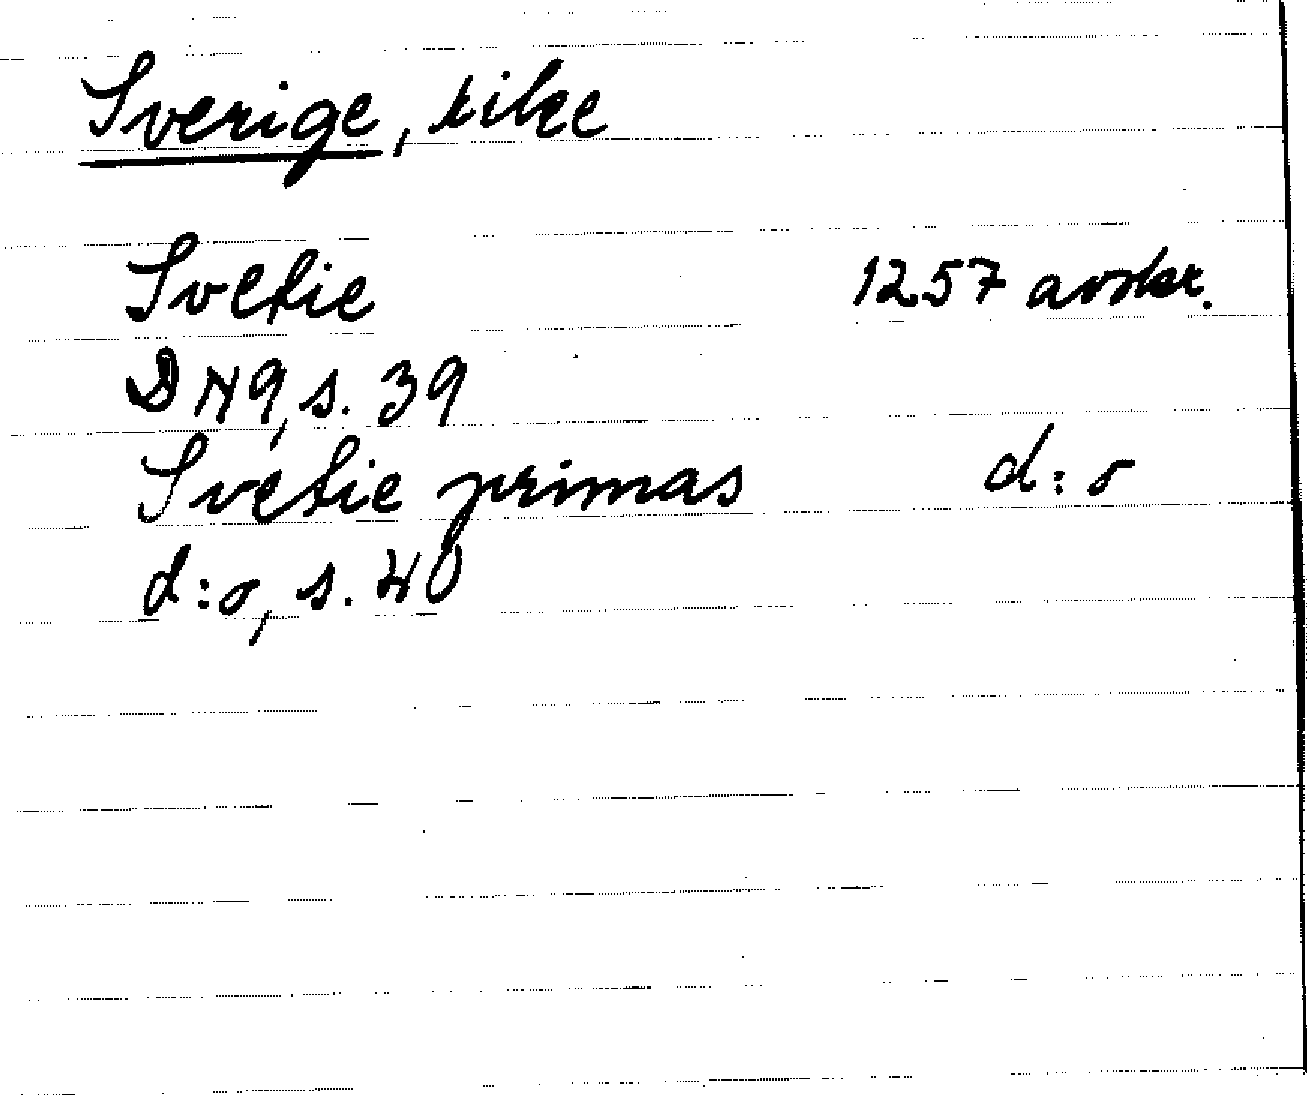 Sverige, rike
Svetie 1257 avskr.
DN 9, s. 39
Svetie primas d:o
d:o, s. 40